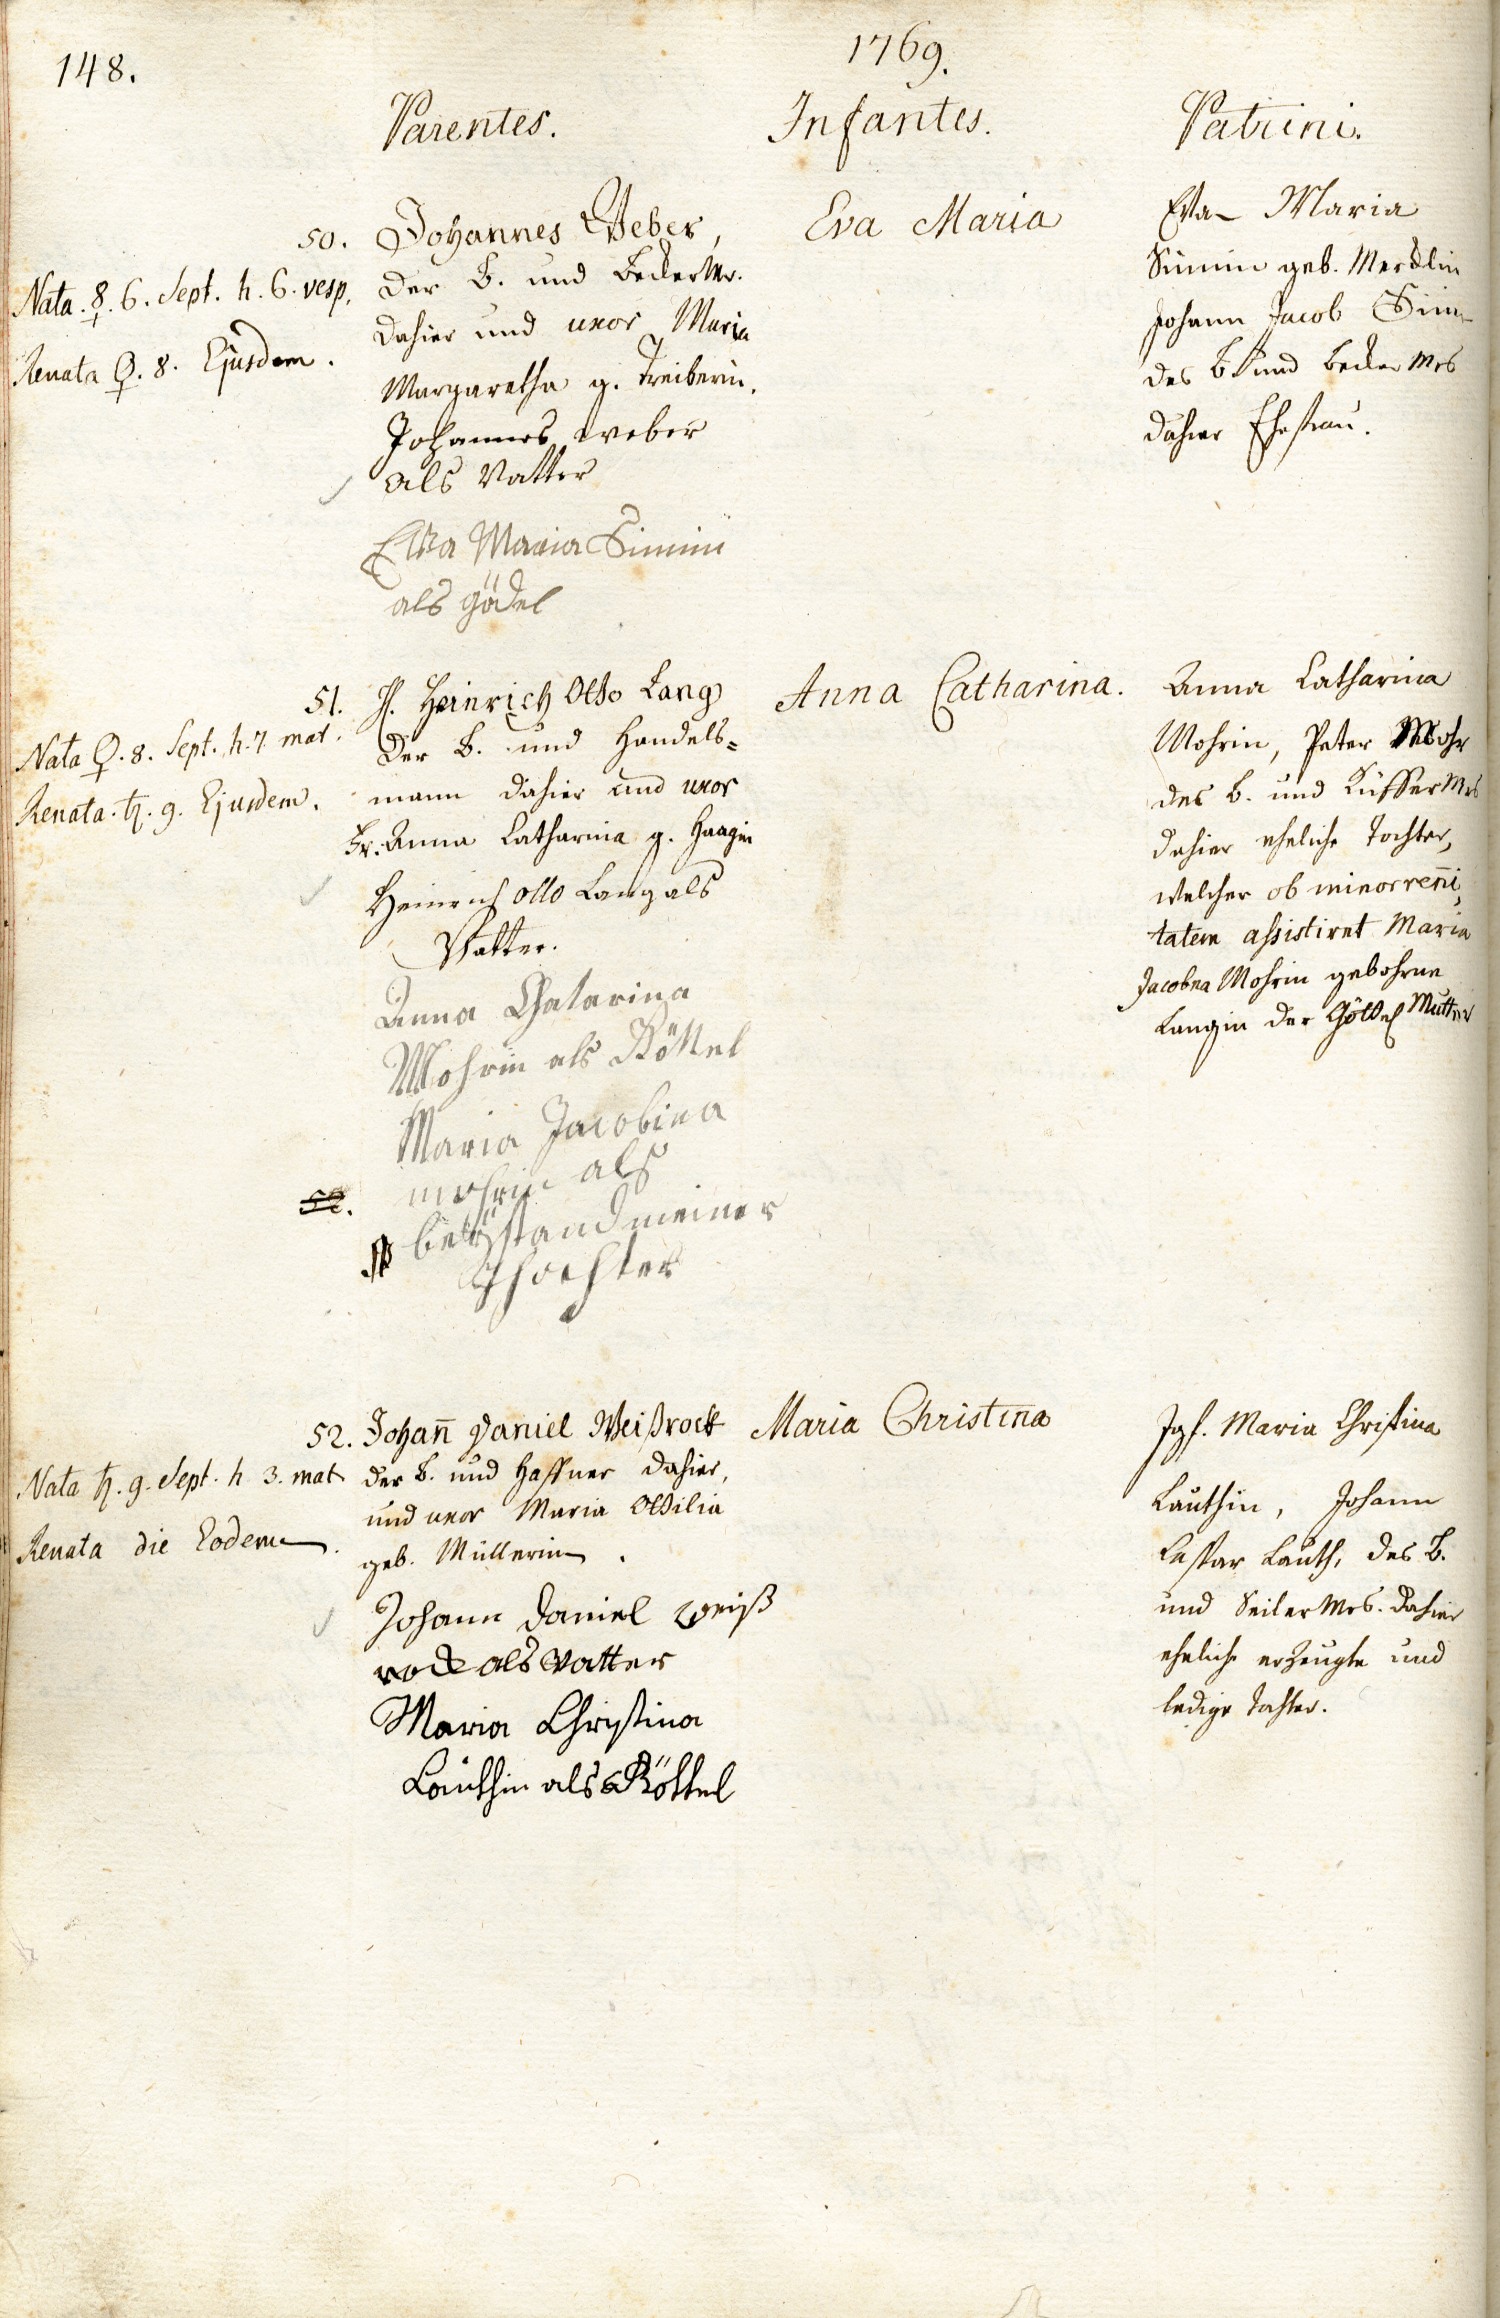 148.
1769.
Parentes. Infantes. Patrini.
50. Johannes Weber,
der B. und Becker Mr.
dahier und uxor Maria
Margaretha g. Treiberin.
Johannes weber
als Vatter
Eva Maria Simin
als gödel
Nata ☿. 6. Sept. h. 6. vesp.
Renata ♀. 8. Ejusdem.
Eva Maria
Eva Maria
Simin geb. Mercklin
Johann Jacob Sim
des B. und Becker Mrs
dahier Ehefrau.
51. H. Heinrich Otto Lang
der B. und Handels=
mann dahier und uxor
Fr. Anna Catharina g. Haagin
Heinrich Otto Lang als
Vatter.
Anna Chatarina
Mohrin als Göttel
Maria Jacobina
mohrin als
beÿstand meiner
Thochter
Nata ♀. 8. Sept. h. 7. mat.
Renata ♄. 9. Ejusdem.
Anna Catharina.
Anna Catharina
Mohrin, Peter Mohr
des B. und Küffer Mrs
dahier eheliche Tochter,
welcher ob minorreñi,
tatem assistiret Maria
Jacobea Mohrin gebohrne
Langin der Göttel Mutter
52.
52. Johañ Daniel Weißrock
der B. und Haffner dahier,
und uxor Maria Ottilia
geb. Müllerin.
Johann Daniel weiß
rock als Vatter
Maria Christina
Lauthin als Göttel
Nata ♄. 9. Sept. h 3. mat
Renata die Eodem.
Maria Christina
Jgf. Maria Christina
Lauthin, Johann
Caspar Lauth, des B.
und Seiler Mrs. dahier
eheliche erzeugte und
ledige Tochter.